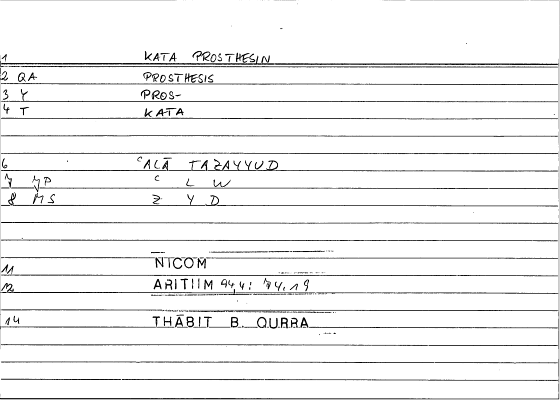 1 KATA PROSTHESIN
2 QA PROSTHESIS
3 Y PROS-
4 T KATA
6 ʿALĀ TAZAYYUD
7 JP ʿ L W
8 MS Z Y D
11 NICOM
12 ARITIIM 94,4: 74,19
14 THĀBIT B. QURRA